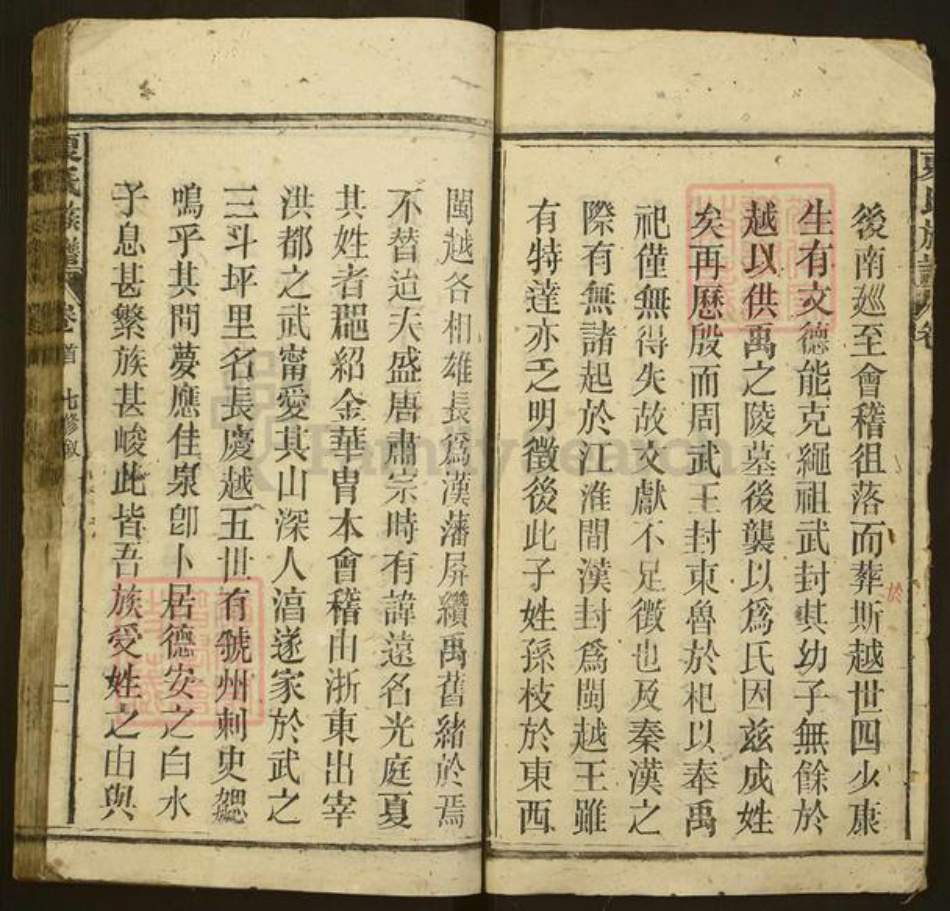 後南廵至會稽徂落而葬斯越世四少康
生有文德能克繩祖武封其幼子無餘於
越以供禹之陵墓後襲以爲氏因兹成姓
矣再歷殷而周武王封東魯於杞以奉禹
祀僅無得失故文獻不足徵也及秦漢之
際有無諸起於江淮間漢封爲閩越王雖
有特達亦乏明徵後此子姓孫枝於東西
於
閩越各相雄長爲漢藩屏纘禹舊緒於焉
不替迨天盛唐肅宗時有諱遠名光庭夏
其姓者郡紹金華胄本會稽由浙東出宰
洪都之武甯愛其山深人湻遂家於武之
三斗坪里名長慶越五世有虢州刺史勰
鳴乎其間夢應佳泉卽卜居德安之白水
子息甚繁族甚峻此皆吾族受姓之由與
夏氏族譜 卷首 七修叙 二
FamilySearch